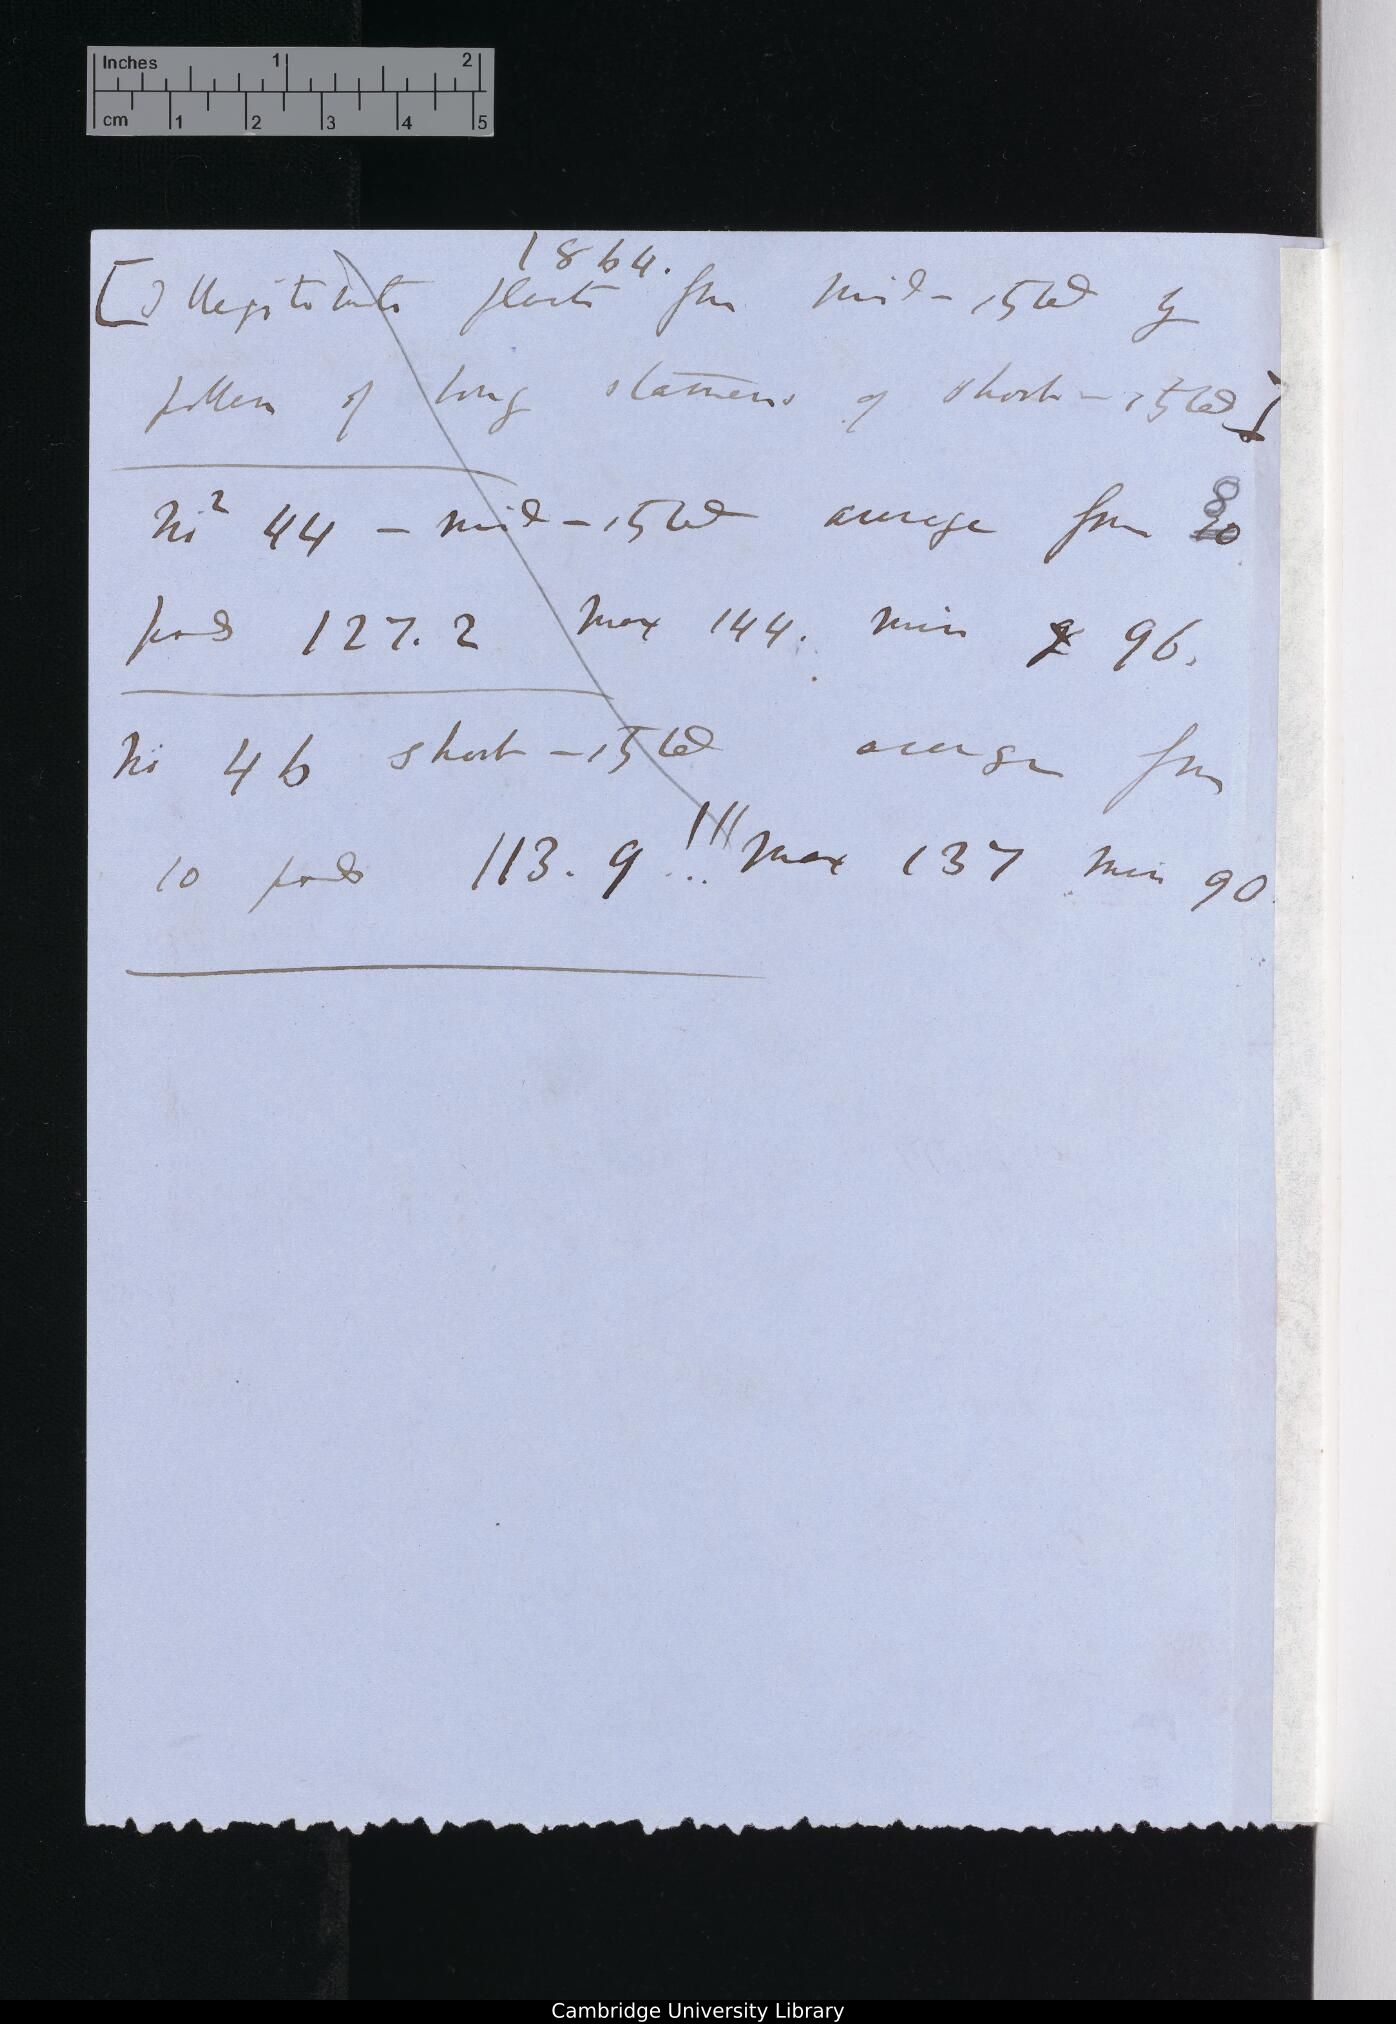 Inches 1 2
cm 1 2 3 4 5
1864.
[Illegitimate plants from mid-styled by
pollen of long stamens of short-styled]
No 44 - mid-styled average from 8
pods 127.2 Max 144. Min 96.
No 46 short-styled average from
10 pods 113.9!!! Max 137 Min 90.
Cambridge University Library